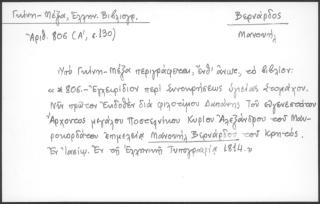 Γκίνη - Μέξα, Ελλην. Βιβλιογρ.
Ἀριθ. 806 (Α', σ.130)
Βερνάρδος
Μανουήλ
Ὑπὸ Γκίνη-Μέξα περιγράφεται, ἔνθ' ἄνωτ., τὸ βιβλίον:
«*806.- Ἐγχειρίδιον περί Συντηρήσεως ὑγιείας Στομάχου.
Νῦν πρῶτον Ἐκδοθὲν διὰ φιλοτίμου Δαπάνης Τοῦ εὐγενεστάτου
Ἄρχοντος μεγάλου Ποστελνίκου Κυρίου Ἀλεξάνδρου τοῦ Μαυ-
ροκορδάτου ἐπιμελείᾳ Μανουήλ Βερνάρδου τοῦ Κρητός.
Ἐν Ἰασίῳ. Ἐν τῇ Ἑλληνικῇ Τυπογραφίᾳ 1814.»